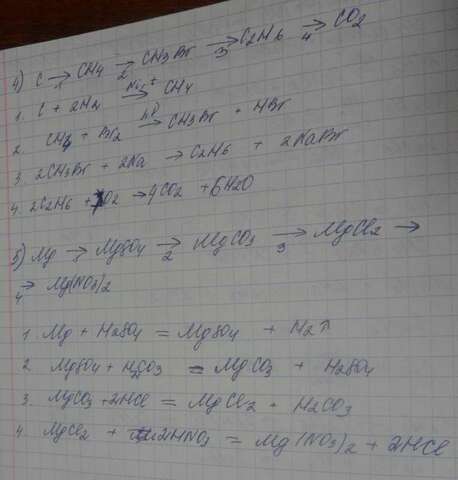 4) C →1 CH4 →2 CH3Br →3 C2H6 →4 CO2
1. C + 2H2 Ni, t→ CH4
2. CH4 + Br2 hν→ CH3Br + HBr
3. 2CH3Br + 2Na → C2H6 + 2NaBr
4. 2C2H6 + 7O2 → 4CO2 + 6H2O
5) Mg →1 MgSO4 →2 MgCO3 →3 MgCl2 →
→4 Mg(NO3)2
1. Mg + H2SO4 = MgSO4 + H2↑
2. MgSO4 + H2CO3 = MgCO3 + H2SO4
3. MgCO3 + 2HCl = MgCl2 + H2CO3
4. MgCl2 + 2HNO3 = Mg(NO3)2 + 2HCl